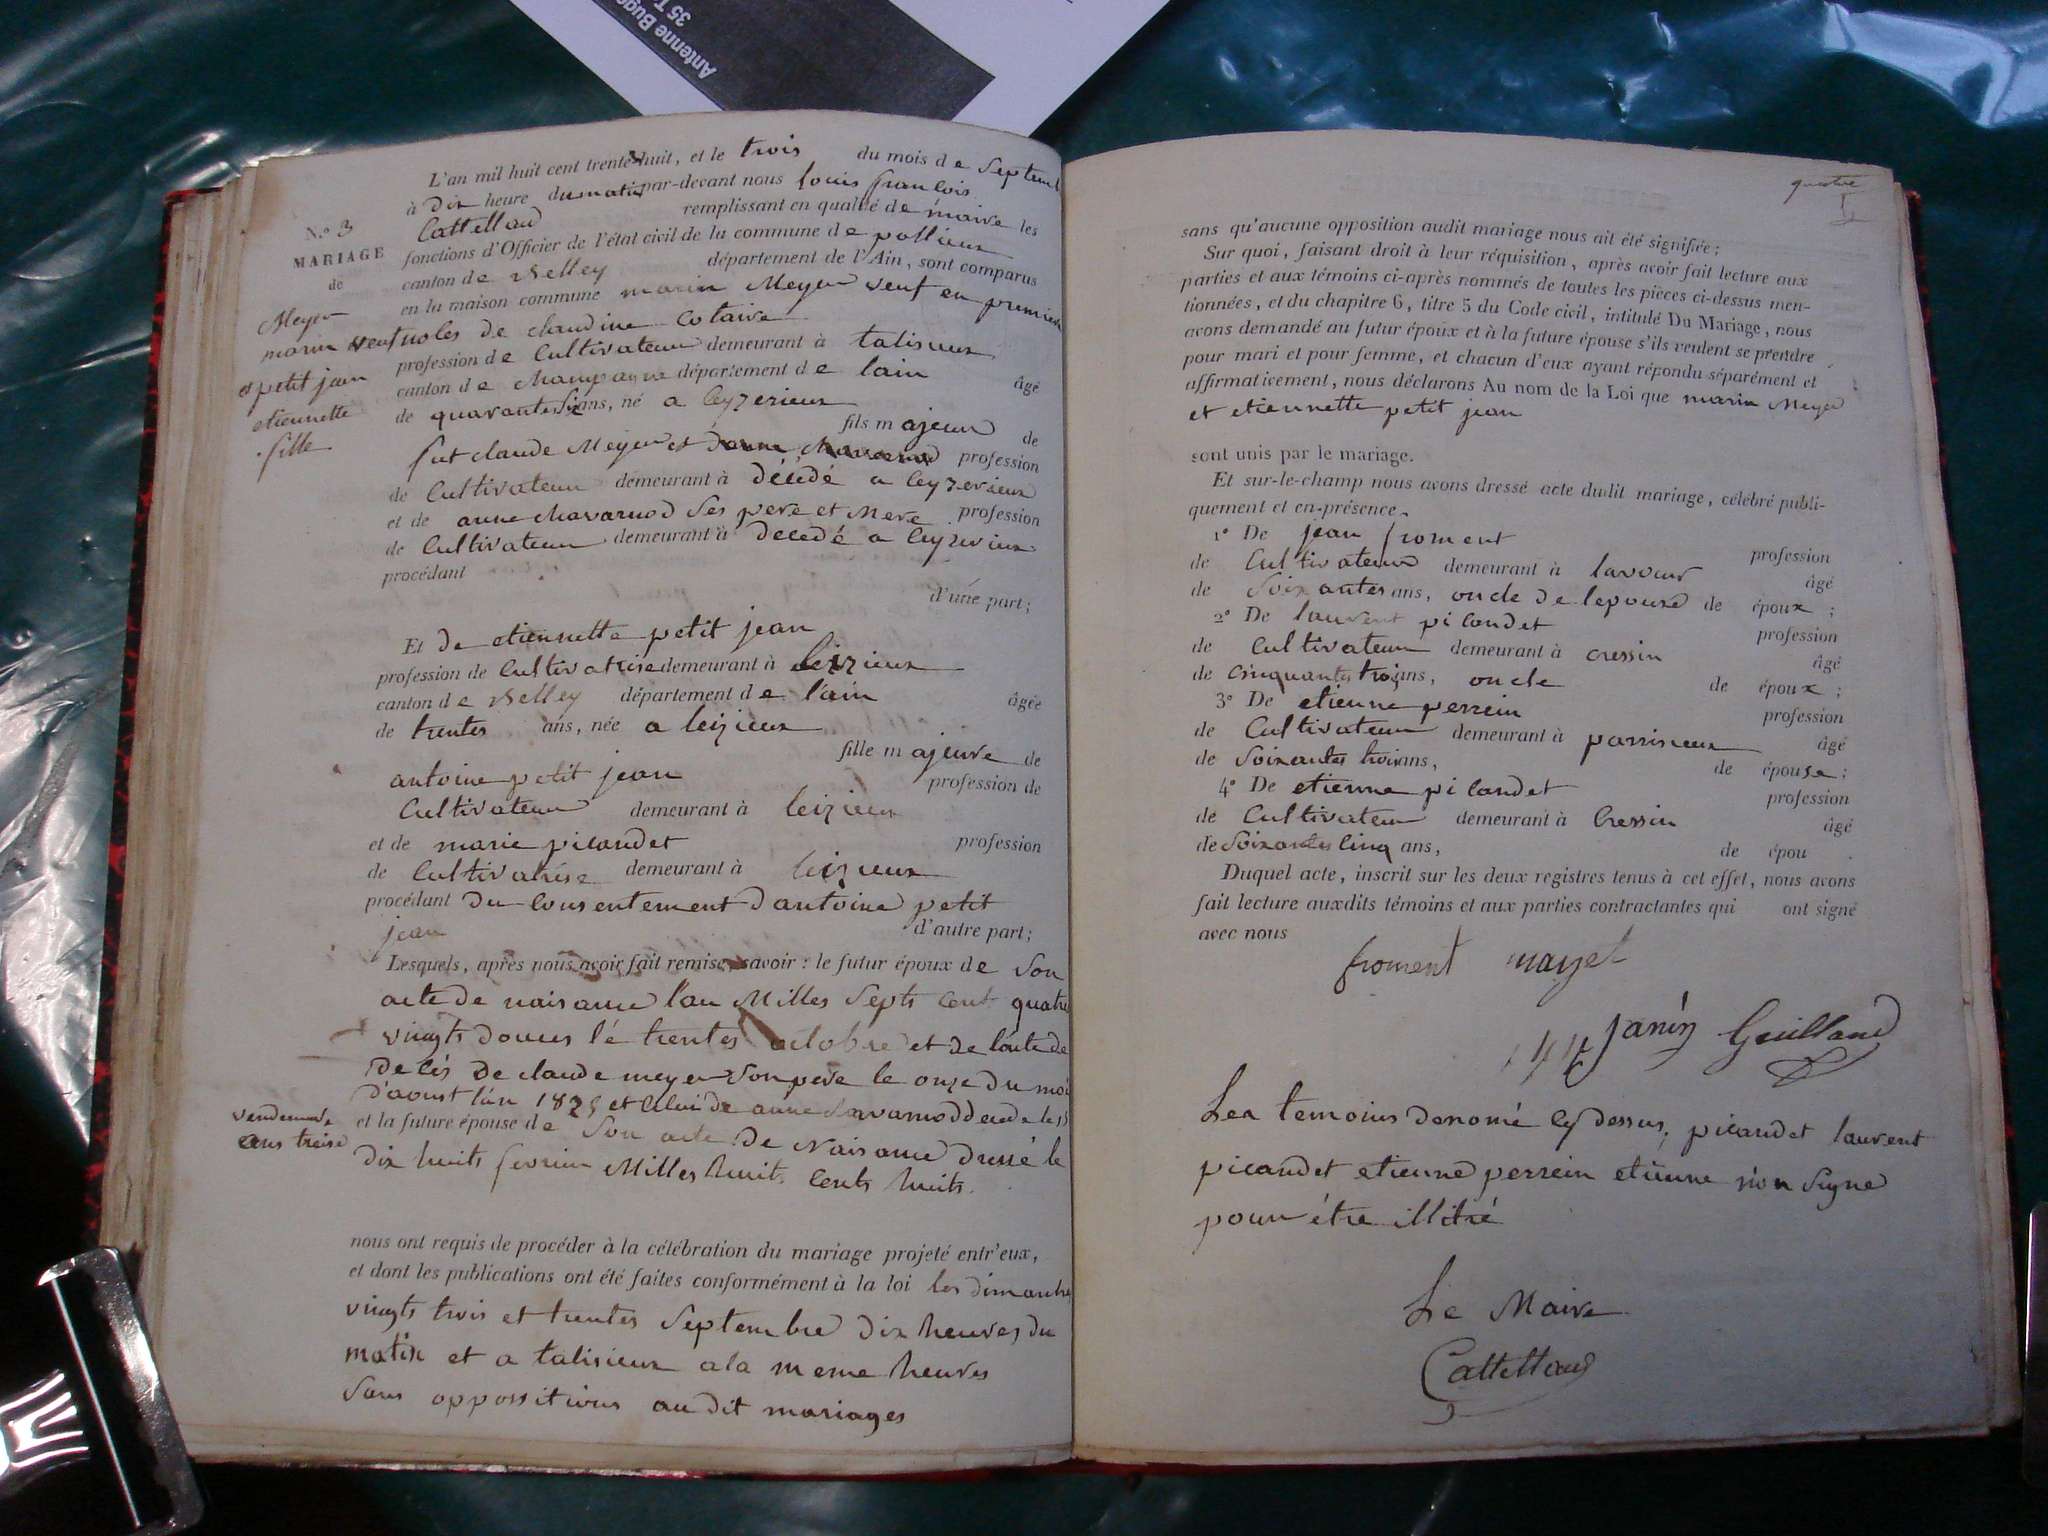 Antenne Buge
35 T
N.º 3
MARIAGE
de
Meyer
marin veuf
et petit jean
etiennette
fille
L'an mil huit cent trente huit, et le trois du mois de Septemb
à dix heure du matin par-devant nous louis françois
Cattelland remplissant en qualité de maire les
fonctions d'Officier de l'état civil de la commune de pollieux
canton de Belley département de l'Ain, sont comparus
en la maison commune marin Meyer veuf en premiere
noles de claudine Cotaire
profession de Cultivateur demeurant à talisieux
canton de Champagne département de lain âgé
de quarante six ans, né a leyzerieux
fils majeur de
fut claude Meyer et profession
de Cultivateur demeurant à décédé a leyzerieux
et de anne chavarnod ses pere et Mere profession
de Cultivateur demeurant à decedé a leyzerieux
procédant
d'une part;
Et de etiennette petit jean
profession de Cultivatrise demeurant à leizieux
canton de Belley département de l'ain âgée
de trentes ans, née a leizieux
fille majeure de
antoine petit jean profession de
Cultivateur demeurant à leizieux
et de marie picandet profession
de Cultivatrise demeurant à leizieux
procédant du consentement d antoine petit
jean d'autre part;
Lesquels, après nous avoir fait remise, savoir: le futur époux de Son
acte de naisance lan Milles Septs cent quatre
vingts douces lé trentes octobre et de lacte de
décés de claude meyer Son pere le onze du moi
d'aoust lan 1825 et celui de anne
vendemere
ans treise
et la future épouse de Son acte de Naisance dressé le
dix huits fevrier Milles huit cents huits.
nous ont requis de procéder à la célébration du mariage projeté entr'eux,
et dont les publications ont été faites conformément à la loi les dimanches
vingts trois et trentes Septembre dix heures du
matin et a talisieux a la meme heures
Sans oppossitions au dit mariages
quatre
sans qu'aucune opposition audit mariage nous ait été signifiée;
Sur quoi, faisant droit à leur réquisition, après avoir fait lecture aux
parties et aux témoins ci-après nommés de toutes les pièces ci-dessus men-
tionnées, et du chapitre 6, titre 5 du Code civil, intitulé Du Mariage, nous
avons demandé au futur époux et à la future épouse s'ils veulent se prendre
pour mari et pour femme, et chacun d'eux ayant répondu séparément et
affirmativement, nous déclarons Au nom de la Loi que marin Meyer
et etiennette petit jean
sont unis par le mariage.
Et sur-le-champ nous avons dressé acte dudit mariage, célébré publi-
quement et en présence
1º De jean froment profession
de Cultivateur demeurant à lavour âgé
de Soixantes ans, oncle de lepouse de époux;
2º De laurent picandet profession
de Cultivateur demeurant à cressin âgé
de cinquantes trois ans, oncle de époux;
3º De etienne perrein profession
de Cultivateur demeurant à parrisieux âgé
de Soixantes trois ans, de épouse;
4º De etienne picandet profession
de Cultivateur demeurant à Cressin âgé
de Soixantes Cinq ans, de épou
Duquel acte, inscrit sur les deux registres tenus à cet effet, nous avons
fait lecture auxdits témoins et aux parties contractantes qui ont signé
avec nous
froment mayet
Janin Guilland
Les temoins denomé cy dessus, picandet laurent
picandet etienne perrein etienne non Signe
pour être illitré
Le Maire
Cattelland